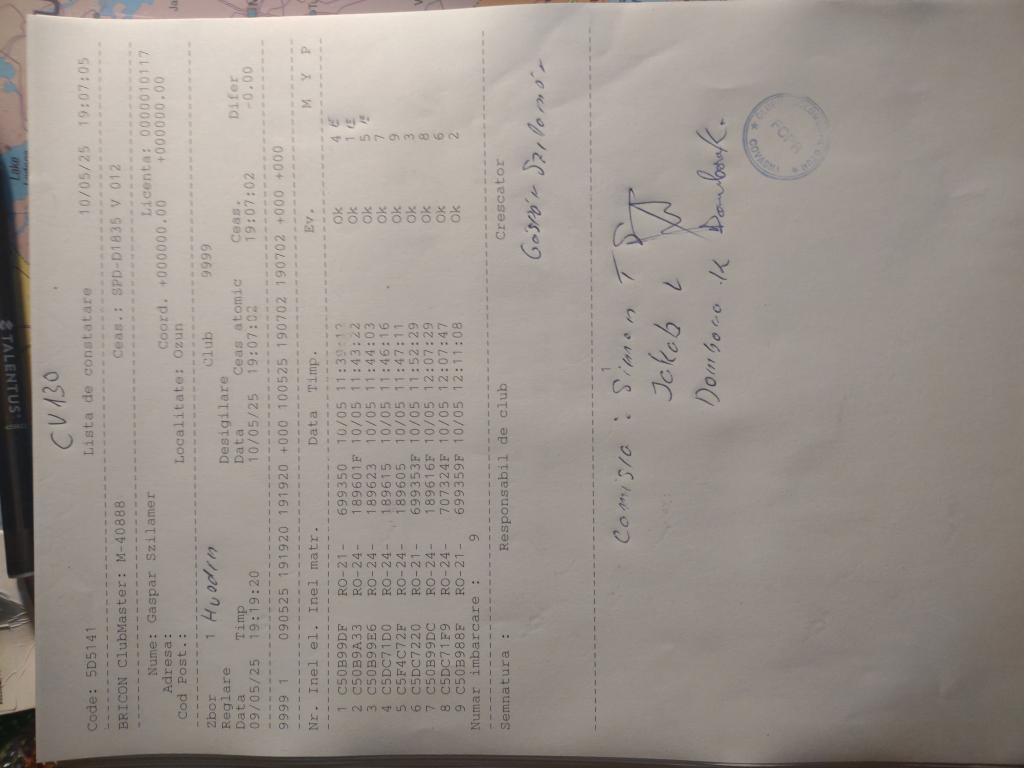 CV130
Code: 5D5141 Lista de constatare 10/05/25 19:07:05
BRICON ClubMaster: M-40888 Ceas.: SPD-D1835 V 012
Nume: Gaspar Szilamer Licenta: 0000010117
Adresa: Coord. +000000.00 +000000.00
Cod Post.: Localitate: Ozun
Zbor 1 Huedin Club 9999
Reglare Desigilare
Data Timp Data Ceas atomic Ceas. Difer
09/05/25 19:19:20 10/05/25 19:07:02 19:07:02 -0.00
9999 1 090525 191920 191920 +000 100525 190702 190702 +000 +000
Nr. Inel el. Inel matr. Data Timp. Ev. M Y P
1 C50B99DF RO-21- 699350 10/05 11:39:12 Ok 4
2 C50B9A33 RO-24- 189601F 10/05 11:43:22 Ok 1
3 C50B99E6 RO-24- 189623 10/05 11:44:03 Ok 5
4 C5DC71D0 RO-24- 189615 10/05 11:46:16 Ok 7
5 C5F4C72F RO-24- 189605 10/05 11:47:11 Ok 9
6 C5DC7220 RO-21- 699353F 10/05 11:52:29 Ok 3
7 C50B99DC RO-24- 189616F 10/05 12:07:29 Ok 8
8 C5DC71F9 RO-24- 707324F 10/05 12:07:47 Ok 6
9 C50B988F RO-21- 699359F 10/05 12:11:08 Ok 2
Numar imbarcare : 9
Semnatura : Responsabil de club Crescator
Gáspár Szilamér
Comisia : Simon T
Jakab L
Dombora K Dombora K.
FCPR